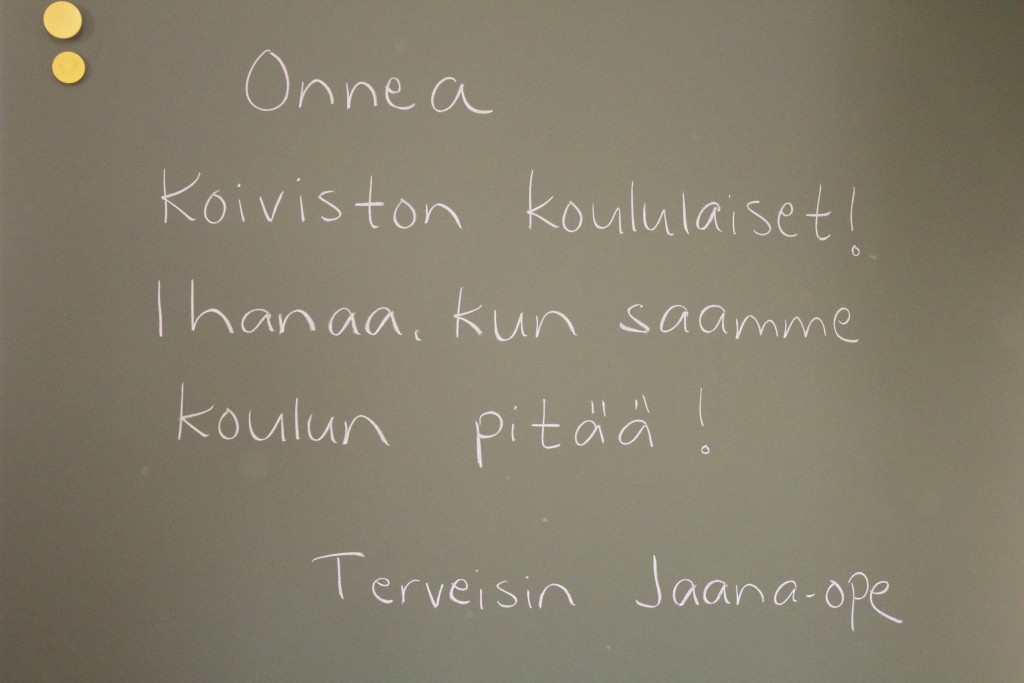 Onnea
Koiviston koululaiset!
Ihanaa, kun saamme
koulun pitää!
Terveisin Jaana-ope